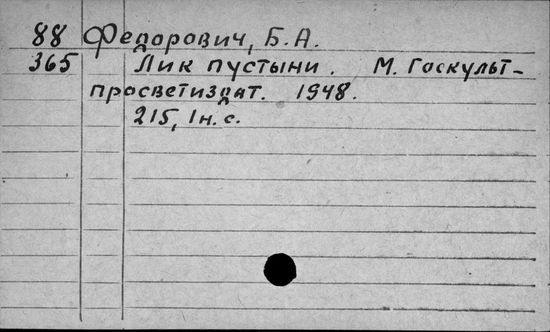 88 Федорович, Б.А.
365 Лик пустыни. М. Госкульт-
просветиздат. 1948.
215, 1н.с.